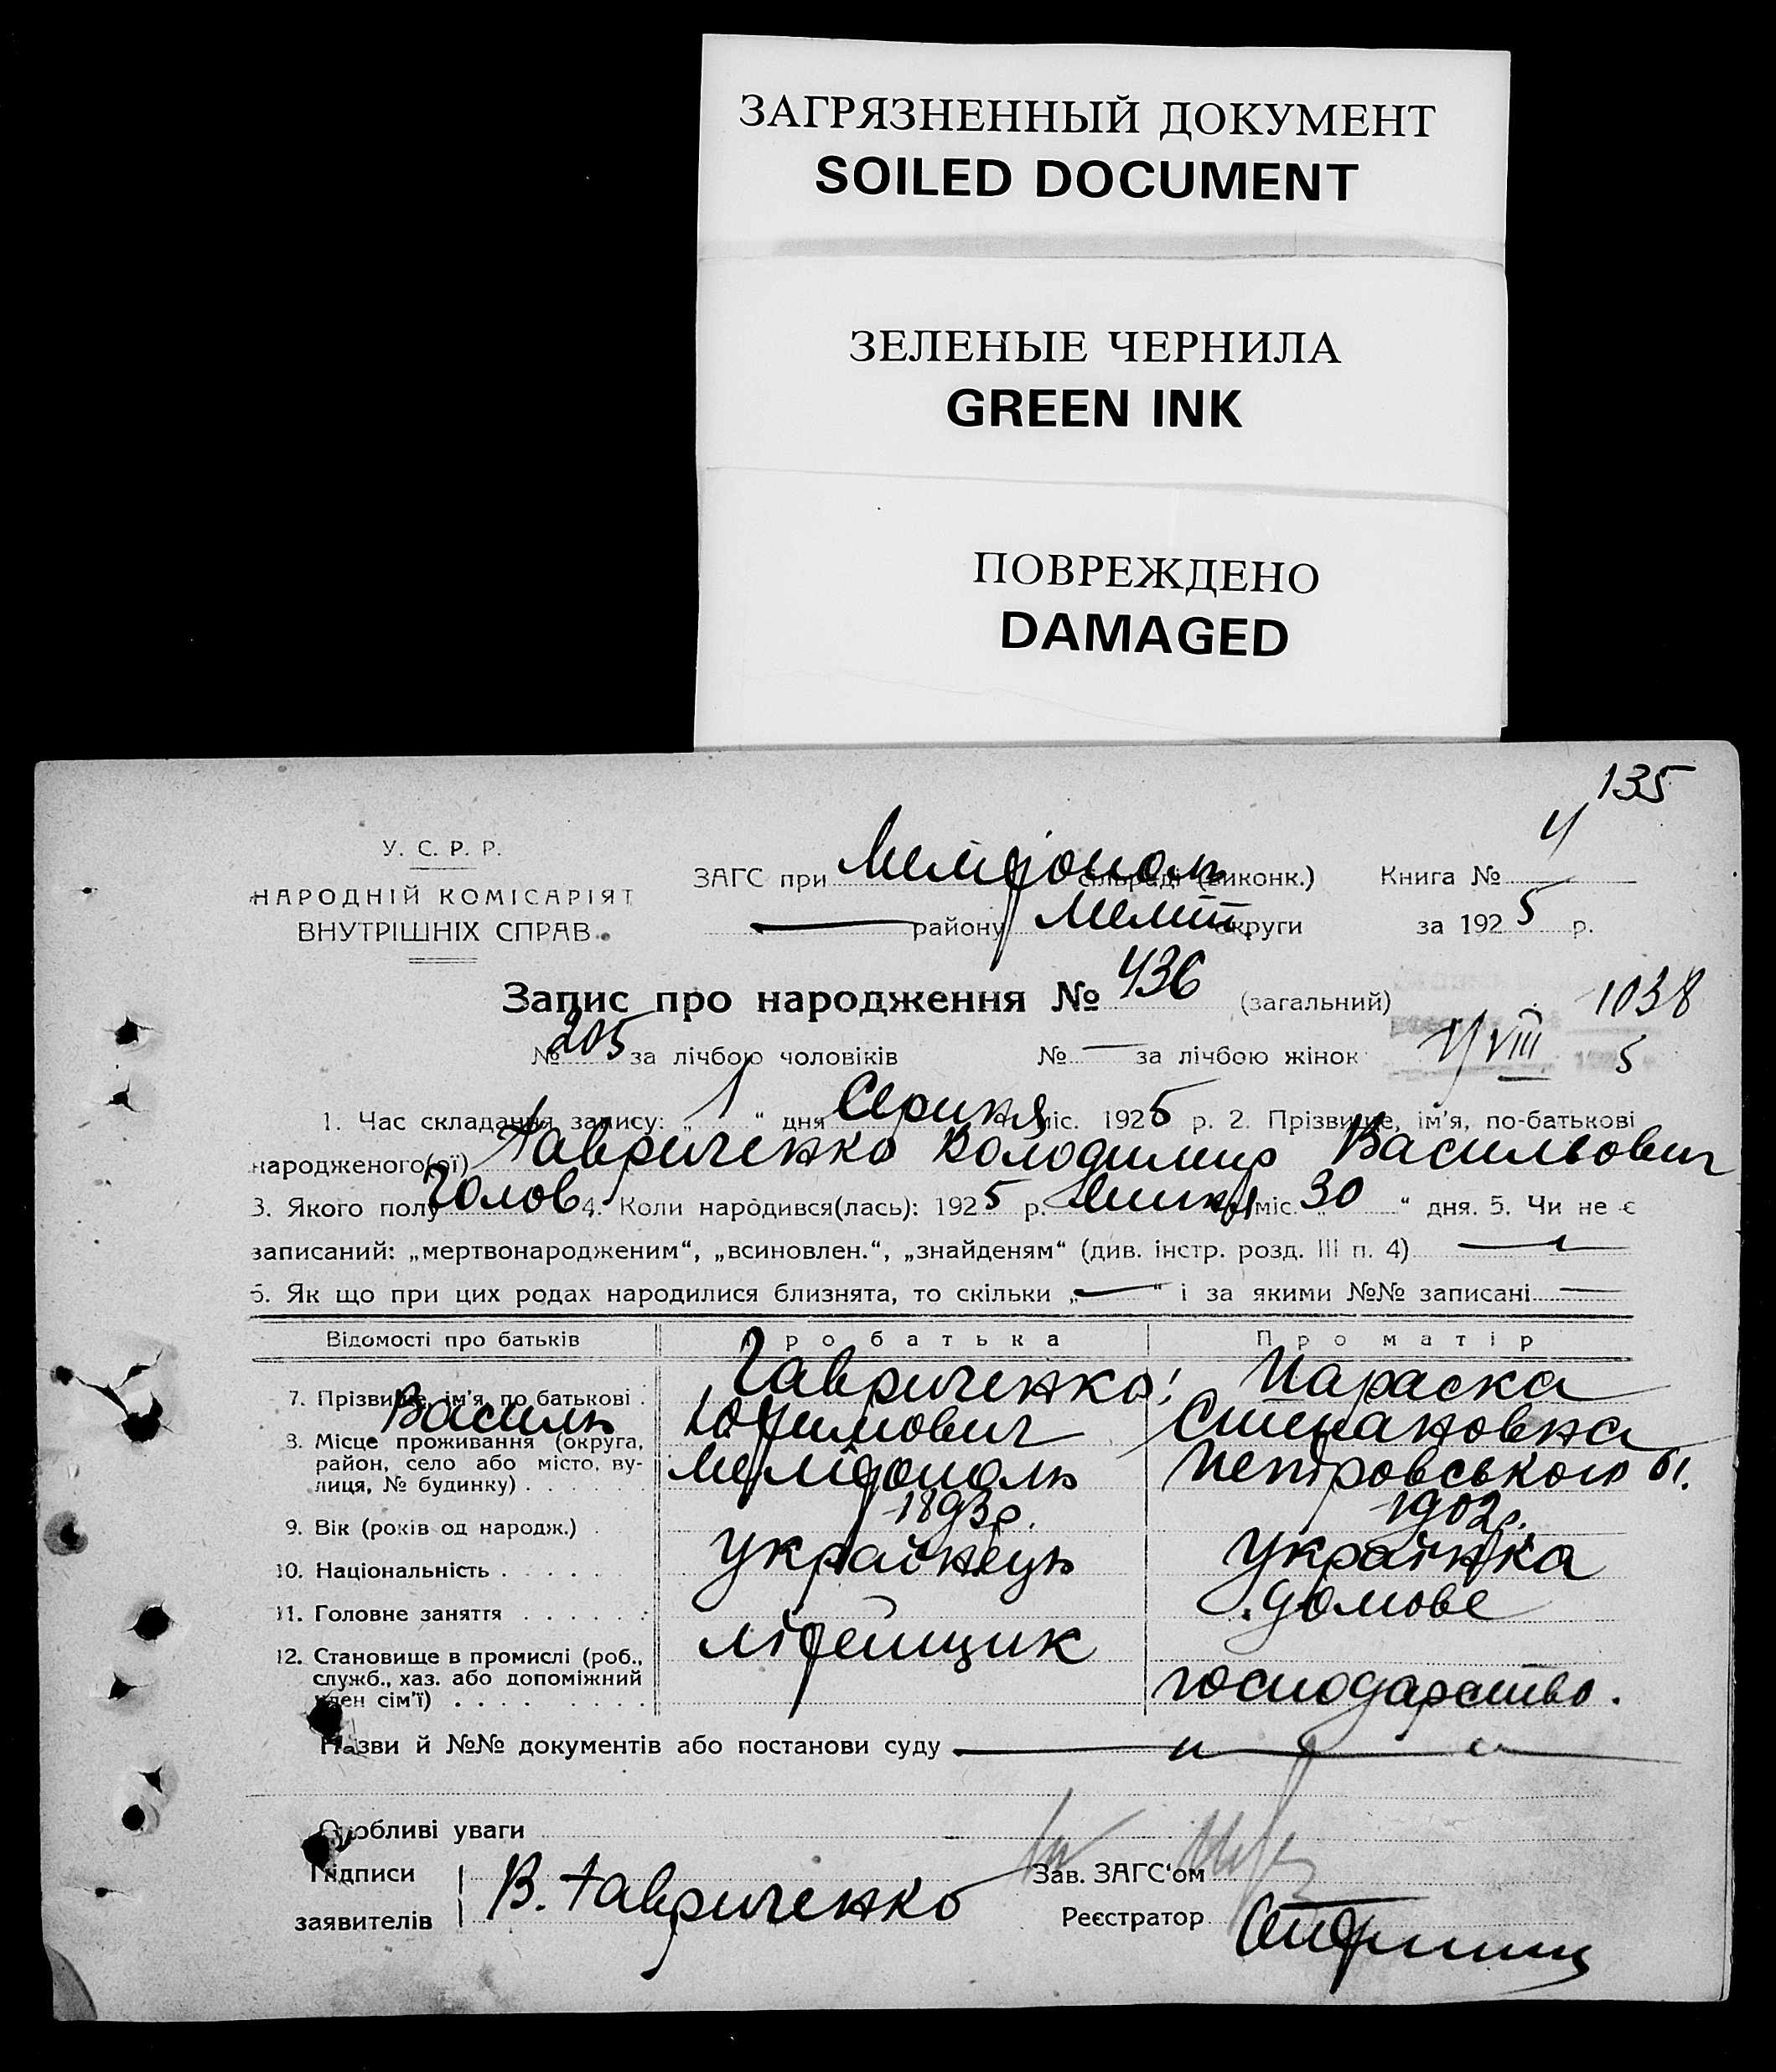 ЗАГРЯЗНЕННЫЙ ДОКУМЕНТ
SOILED DOCUMENT
ЗЕЛЕНЫЕ ЧЕРНИЛА
GREEN INK
ПОВРЕЖДЕНО
DAMAGED
135
У. С. Р. Р.
НАРОДНІЙ КОМІСАРІЯТ
ВНУТРІШНІХ СПРАВ
ЗАГС при Мелітополь сільраді (виконк.) Книга № 4
— району Меліт. округи за 1925 р.
Запис про народження № 436 (загальний) 1038
№ 205 за лічбою чоловіків № — за лічбою жінок VIII 5
1. Час складання запису: „ 1 “ дня Серпня міс. 1925 р. 2. Прізвище, ім’я, по-батькові
народженого(ої) Гавриченко Володимир Васильович
3. Якого полу Чолов 4. Коли народився(лась): 1925 р. Липня міс. „ 30 “ дня. 5. Чи не є
записаний: „мертвонародженим“, „всиновлен.“, „знайденям“ (див. інстр. розд. III п. 4) —
6. Як що при цих родах народилися близнята, то скільки „—“ і за якими №№ записані —
Відомості про батьків Про батька Про матір
7. Прізвище, ім’я, по батькові . Гавриченко Параска
Василь Юхимович Степановна
8. Місце проживання (округа, район, село або місто, вулиця, № будинку) . . . . . . Мелітополь Петровського 61.
9. Вік (років од народж.) . 1893р. 1902р.
10. Національність . . . . . Українець Українка
11. Головне заняття . . . . . . домове
12. Становище в промислі (роб., служб., хаз. або допоміжний член сім’ї) . . . . . . . . господарство.
Назви й №№ документів або постанови суду —
Особливі уваги
Підписи
заявителів В. Гавриченко
Зав. ЗАГС‘ом
Реєстратор